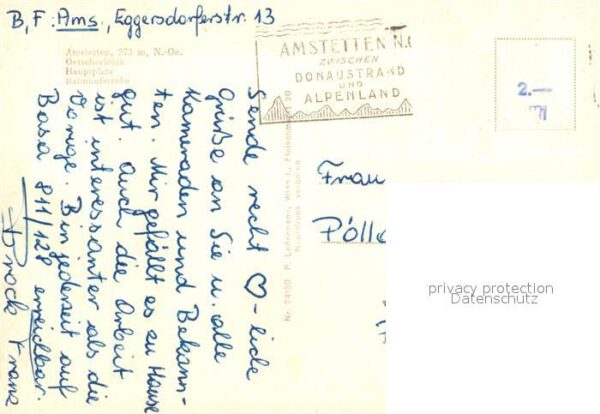 B, F: Ams., Eggersdorferstr. 13
Amstetten, 273 m, N.-Oe.
Oetscherblick
Hauptplatz
Bahnhofstraße
AMSTETTEN N.
ZWISCHEN
DONAUSTRAND
UND
ALPENLAND
2.—
Sende recht ♡-liche
Grüße an Sie u. alle
Kameraden und Bekann-
ten. Mir gefällt es zu Hause
gut. Auch die Arbeit
ist interessanter als die
vorige. Bin jederzeit auf
Basa 811/128 erreichbar.
Brock Franz
Nr. 24130 P. Ledermann, Wien I., Fleischm 20
Nachdruck verboten
Frau
Pölle
privacy protection
Datenschutz